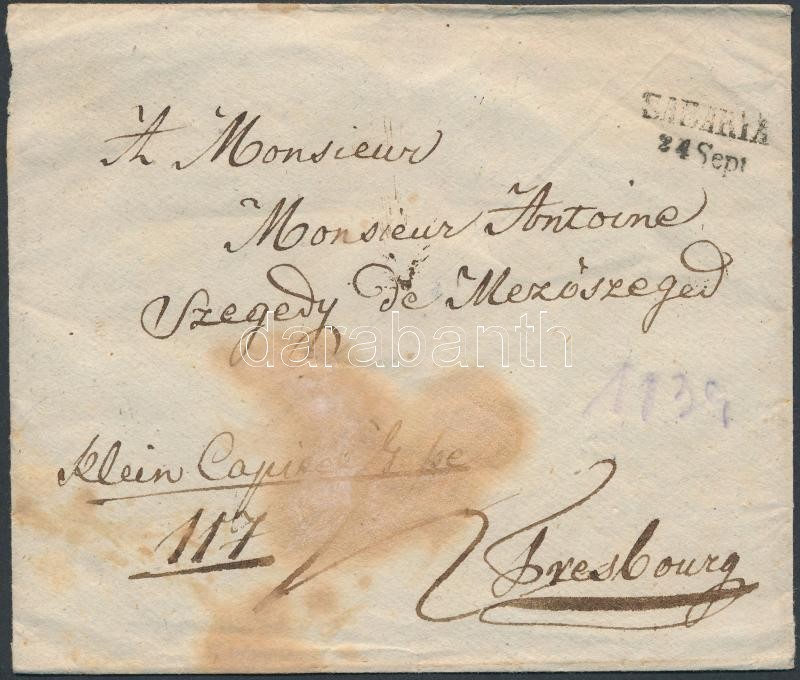 SABARIA
24 Sept
A Monsieur
Monsieur Antoine
Szegedy de Mezőszeged
darabanth
1139
Klein Capitel
117
Presbourg